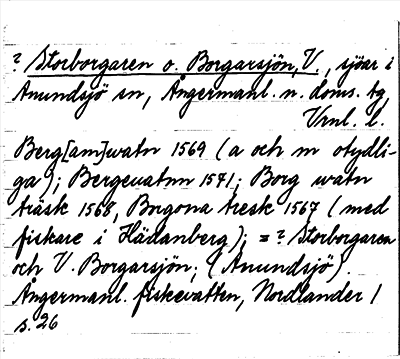 ? Storborgaren o. Borgarsjön, V., sjöar i
Anundsjö sn, Ångermanl. n. doms. tg,
Vrnl. l.
Berg[am]watn 1569 (a och m otydli-
ga); Bergeuatnn 1571; Borg watn
träsk 1568, Borgona tresk 1567 (med
fiskare i Hädanberg); = ? Storborgaren
och V. Borgarsjön; (Anundsjö).
Ångermanl. fiskevatten, Nordlander 1
s. 26